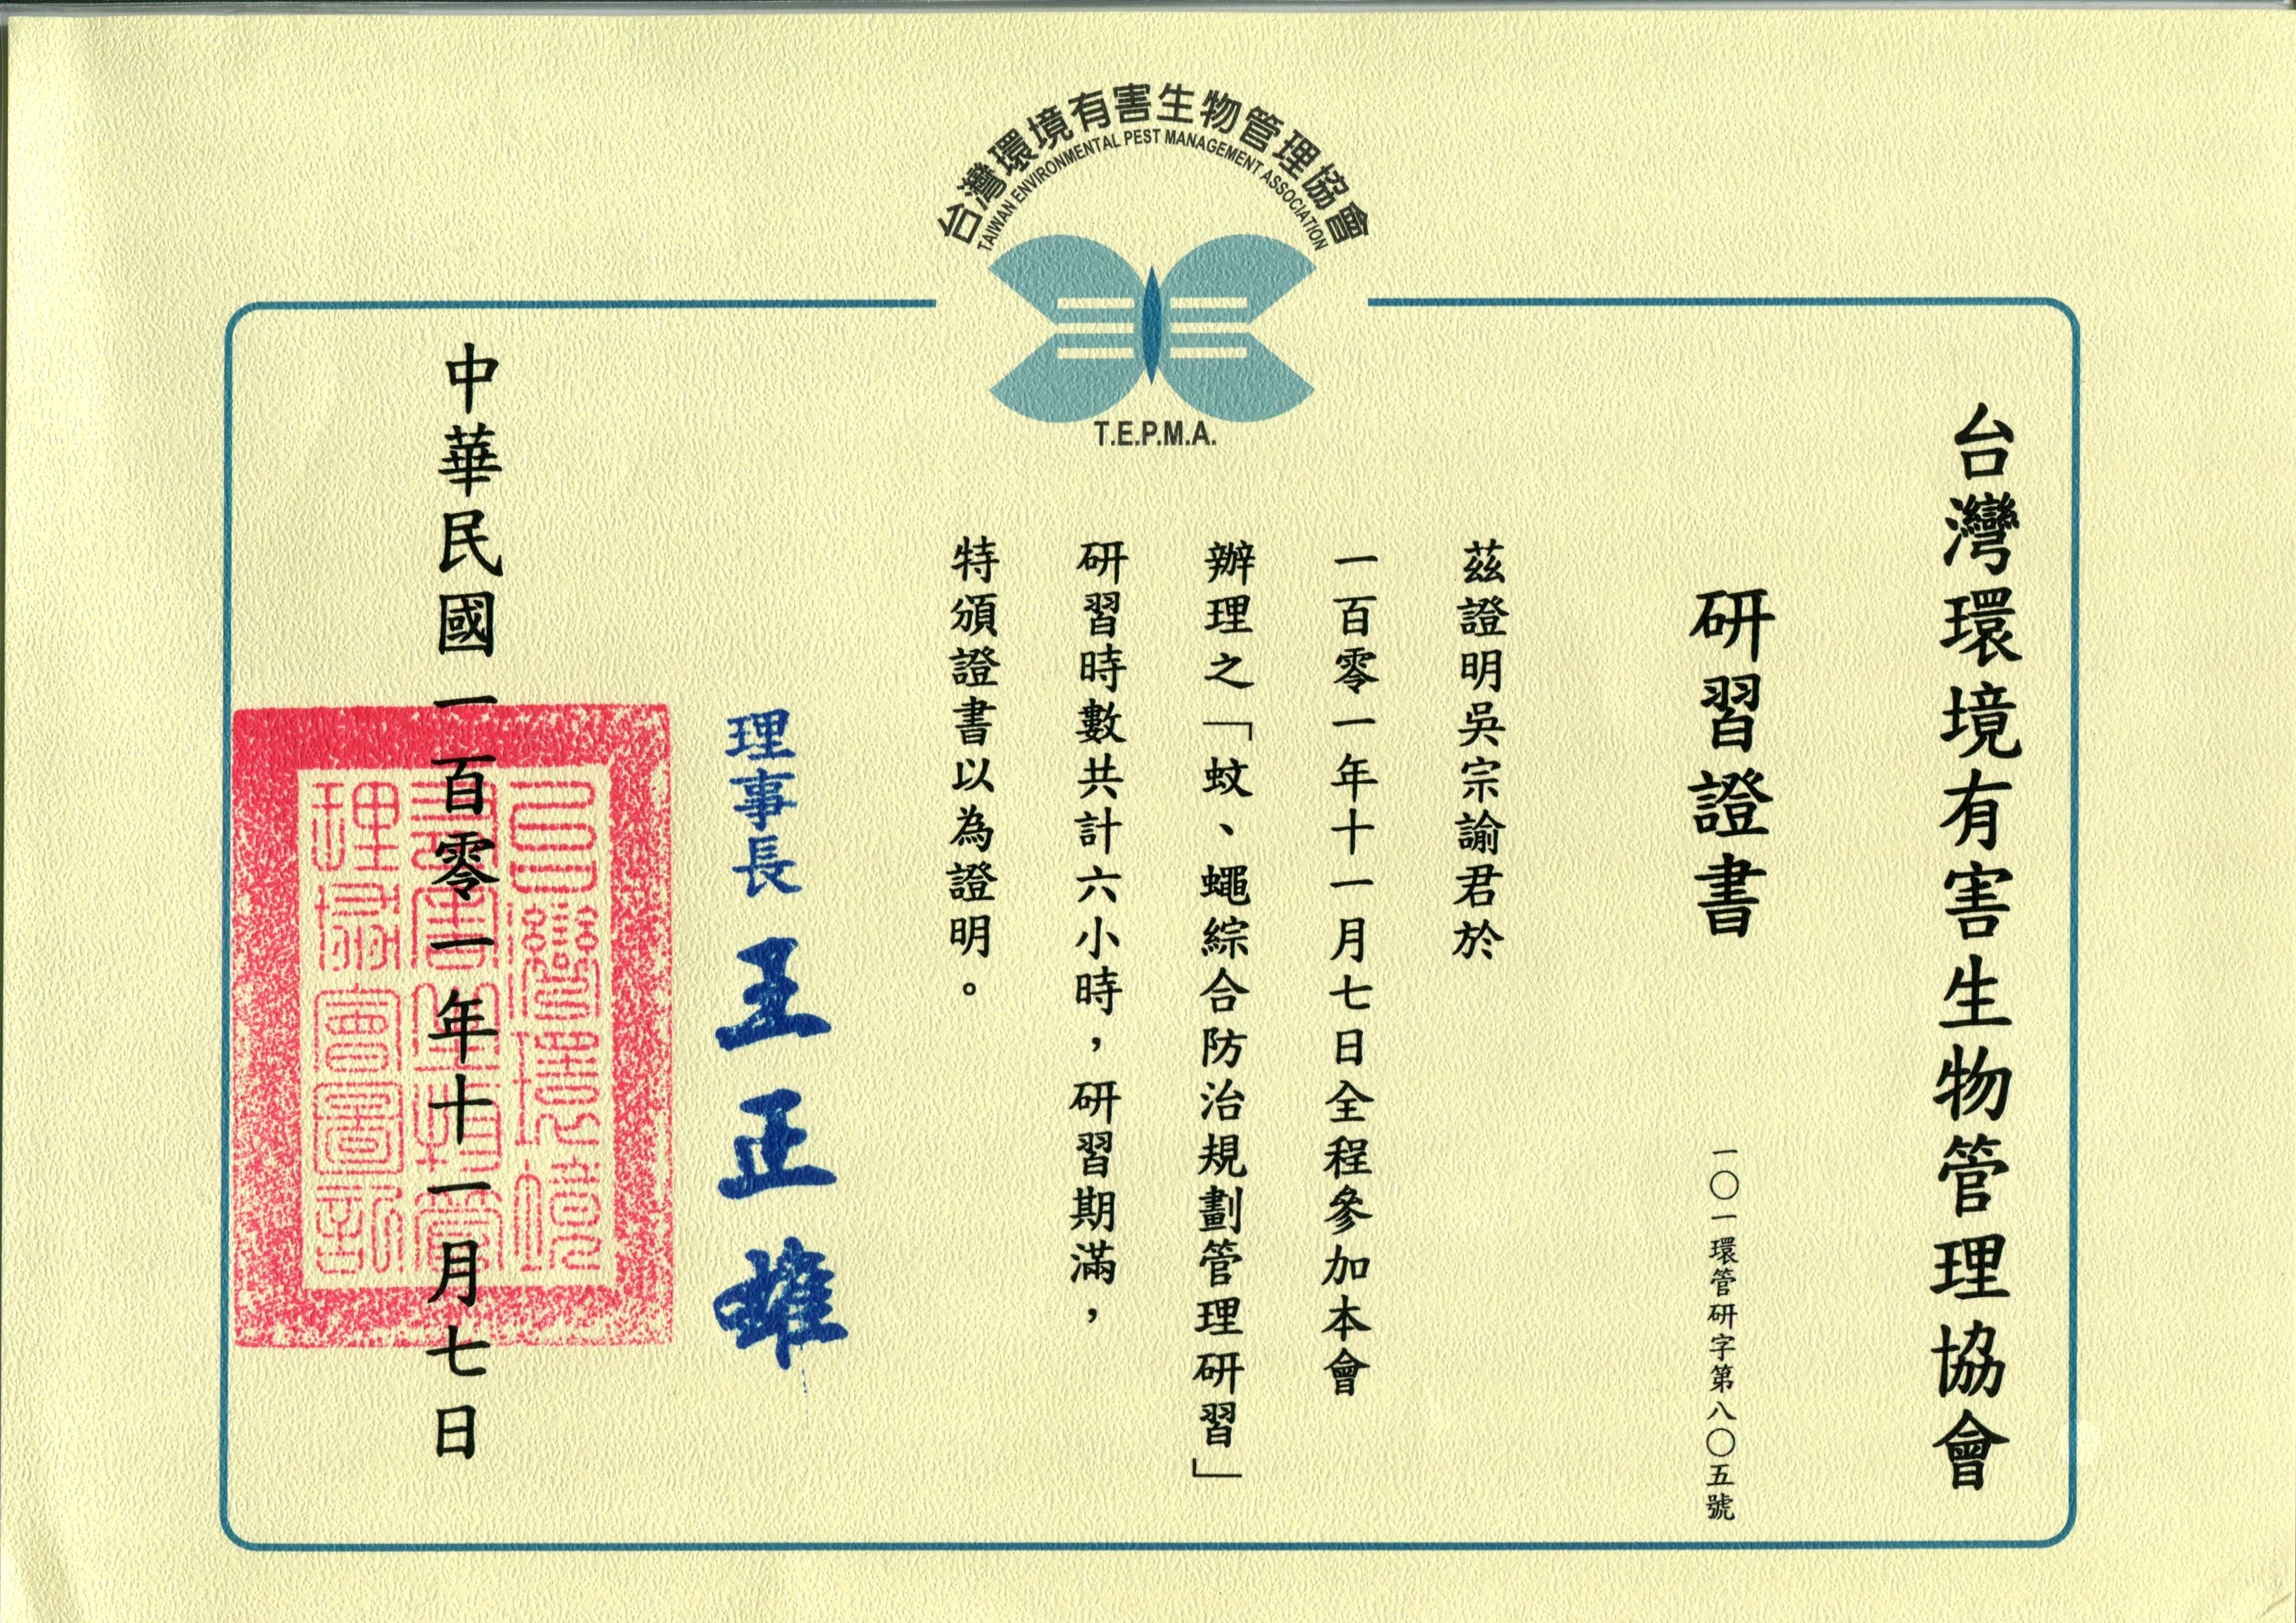 台灣環境有害生物管理協會
TAIWAN ENVIRONMENTAL PEST MANAGEMENT ASSOCIATION
T.E.P.M.A.
台灣環境有害生物管理協會
研習證書
一〇一環管研字第八〇五號
茲證明吳宗諭君於
一百零一年十一月七日全程參加本會
辦理之「蚊、蠅綜合防治規劃管理研習」
研習時數共計六小時，研習期滿，
特頒證書以為證明。
理事長 王正雄
中華民國一百零一年十一月七日